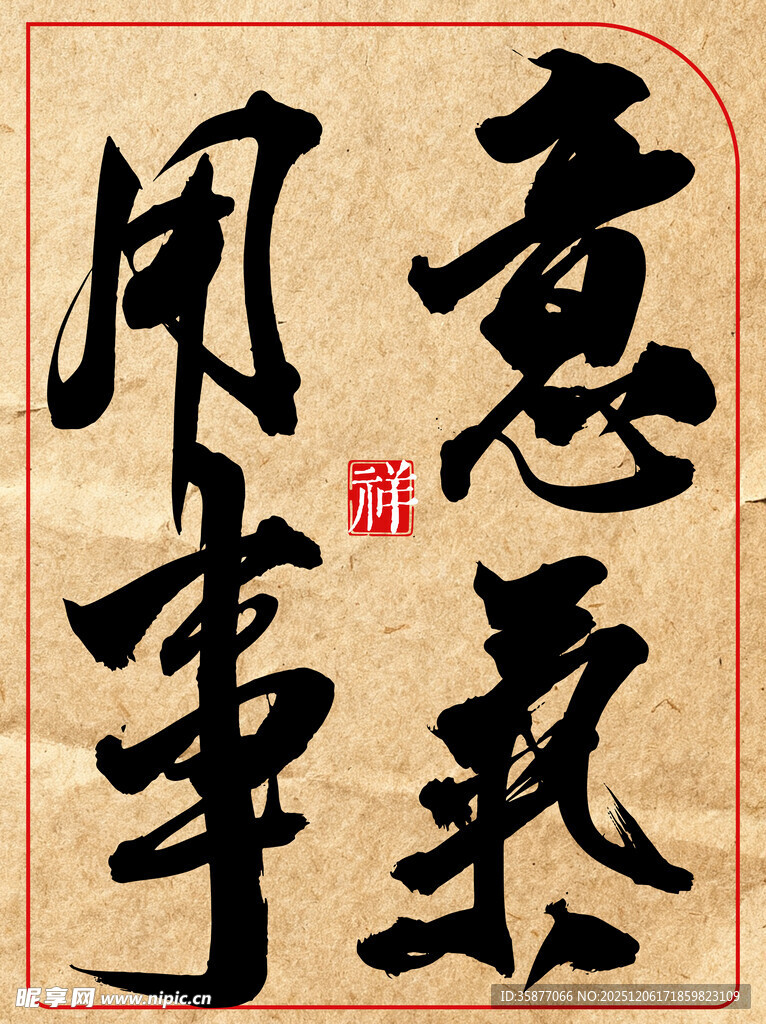 意氣
用事
祥
昵享网 www.nipic.cn
ID:35877066 NO:20251206171859823109